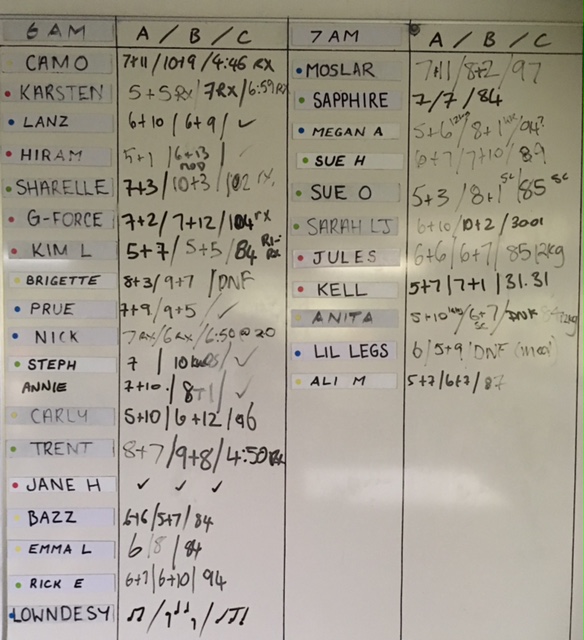 6 AM A / B / C
CAMO 7+11 / 10+9 / 4:46 RX
KARSTEN 5+5 RX / 7RX / 6:59 RX
LANZ 6+10 / 6+9 / ✓
HIRAM 5+1 / 6+13
SHARELLE 7+3 / 10+3 / 102 rx
G-FORCE 7+2 / 7+12 / 104 rx
KIM L 5+7 / 5+5 / 84
BRIGETTE 8+3 / 9+7 / DNF
PRUE 7+9 / 9+5 / ✓
NICK 7 RX / 6 RX / 6:50 @ 20
STEPH 7 / 10 / ✓
ANNIE 7+10 / 8+1 / ✓
CARLY 5+10 / 6+12 / 96
TRENT 8+7 / 9+8 / 4:50 RX
JANE H ✓ ✓ ✓
BAZZ 6+6 / 5+7 / 84
EMMA L 6 / 8 / 84
RICK E 6+7 / 6+10 / 94
LOWNDESY
7 AM A / B / C
MOSLAR 7+11 / 8+2 / 97
SAPPHIRE 7 / 7 / 84
MEGAN A 5+6 / 8+1 / 94?
SUE H 6+7 / 7+10 / 89
SUE O 5+3 / 8+1 sc / 85 sc
SARAH LJ 6+10 / 10+2 / 3001
JULES 6+6 / 6+7 / 85 12kg
KELL 5+7 / 7+1 / 31.31
ANITA 5+10 / 6+7 sc / DNF
LIL LEGS 6 / 5+9 / DNF (mod)
ALI M 5+7 / 6+7 / 87